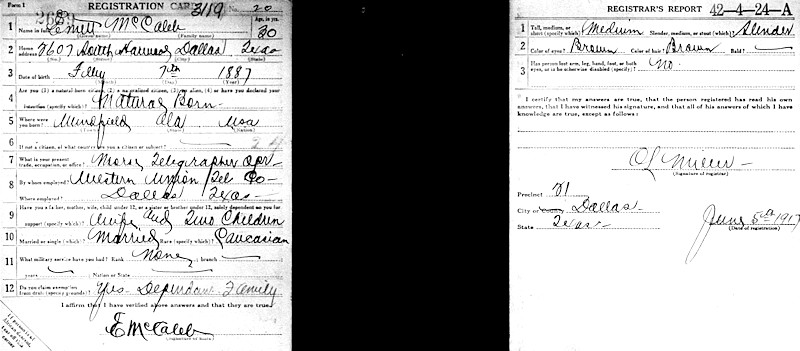 Form 1
REGISTRATION CARD 3119 No. 20
1 Name in full Emett McCaleb Age, in yrs. 30
(Given name) (Family name)
2 Home address 3607 South Dallas Texas
(No.) (Street) (City) (State)
3 Date of birth Feby 7th 1887
(Month) (Day) (Year)
4 Are you (1) a natural-born citizen, (2) a naturalized citizen, (3) an alien, (4) or have you declared your intention (specify which)?
Natural Born
5 Where were you born? Ala Usa
(Town) (State) (Nation)
6 If not a citizen, of what country are you a citizen or subject?
7 What is your present trade, occupation, or office? Morse Telegrapher Opr-
8 By whom employed? Western Union Tel Co-
Where employed? Dallas Texas
9 Have you a father, mother, wife, child under 12, or a sister or brother under 12, solely dependent on you for support (specify which)?
Wife and Two Children
10 Married or single (which)? Married Race (specify which)? Caucasian
11 What military service have you had? Rank None branch
years Nation or State
12 Do you claim exemption from draft (specify grounds)? Yes- Dependant Family
I affirm that I have verified above answers and that they are true.
E McCaleb
(Signature or mark)
REGISTRAR'S REPORT 42-4-24-A
1 Tall, medium, or short (specify which)? Medium Slender, medium, or stout (which)? Slender
2 Color of eyes? Brown Color of hair? Brown Bald?
3 Has person lost arm, leg, hand, foot, or both eyes, or is he otherwise disabled (specify)? No.
I certify that my answers are true, that the person registered has read his own answers, that I have witnessed his signature, and that all of his answers of which I have knowledge are true, except as follows:
(Signature of registrar)
Precinct 31
City or County Dallas
State Texas
June 5th 1917
(Date of registration)